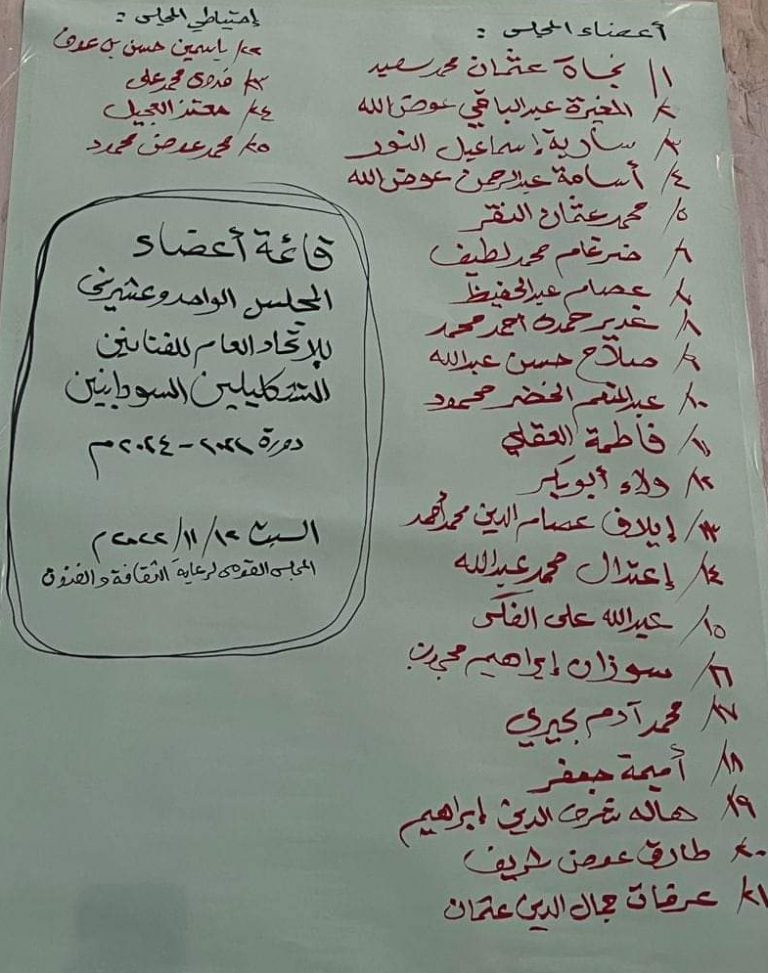 أعضاء المجلس :
١/ نجاة عثمان محمد سعيد
٢/ المغيرة عبدالباقي عوض الله
٣/ سارية إسماعيل النور
٤/ أسامة عبدالرحمن عوض الله
٥/ محمد عثمان النقر
٦/ ضرغام محمد لطيف
٧/ عصام عبدالحفيظ
٨/ غدير حمدة احمد محمد
٩/ صلاح حسن عبدالله
١٠/ عبدالمنعم الخضر محمود
١١/ فاطمة العقلي
١٢/ ولاء أبوبكر
١٣/ إيلاف عصام الدين محمد احمد
١٤/ إعتدال محمد عبدالله
١٥/ عبدالله على الفكى
١٦/ سوزان إبراهيم
١٧/ محمد آدم بحيري
١٨/ أميمة جعفر
١٩/ هاله شرف الدين إبراهيم
٢٠/ طارق عوض شريف
٢١/ عرفات جمال الدين عثمان
إحتياطي المجلس :
٢٢/ ياسمين حسن بن عوف
٢٣/ فدوى محمد على
٢٤/ معتز العجيل
٢٥/ محمد عوض محمود
قائمة أعضاء
المجلس الواحد وعشرينى
للإتحاد العام للفنانين
التشكيليين السودانيين
دورة ٢٠٢٢ - ٢٠٢٤م
السبت ١٢/ ١١/ ٢٠٢٢م
المجلس القومى لرعاية الثقافة والفنون